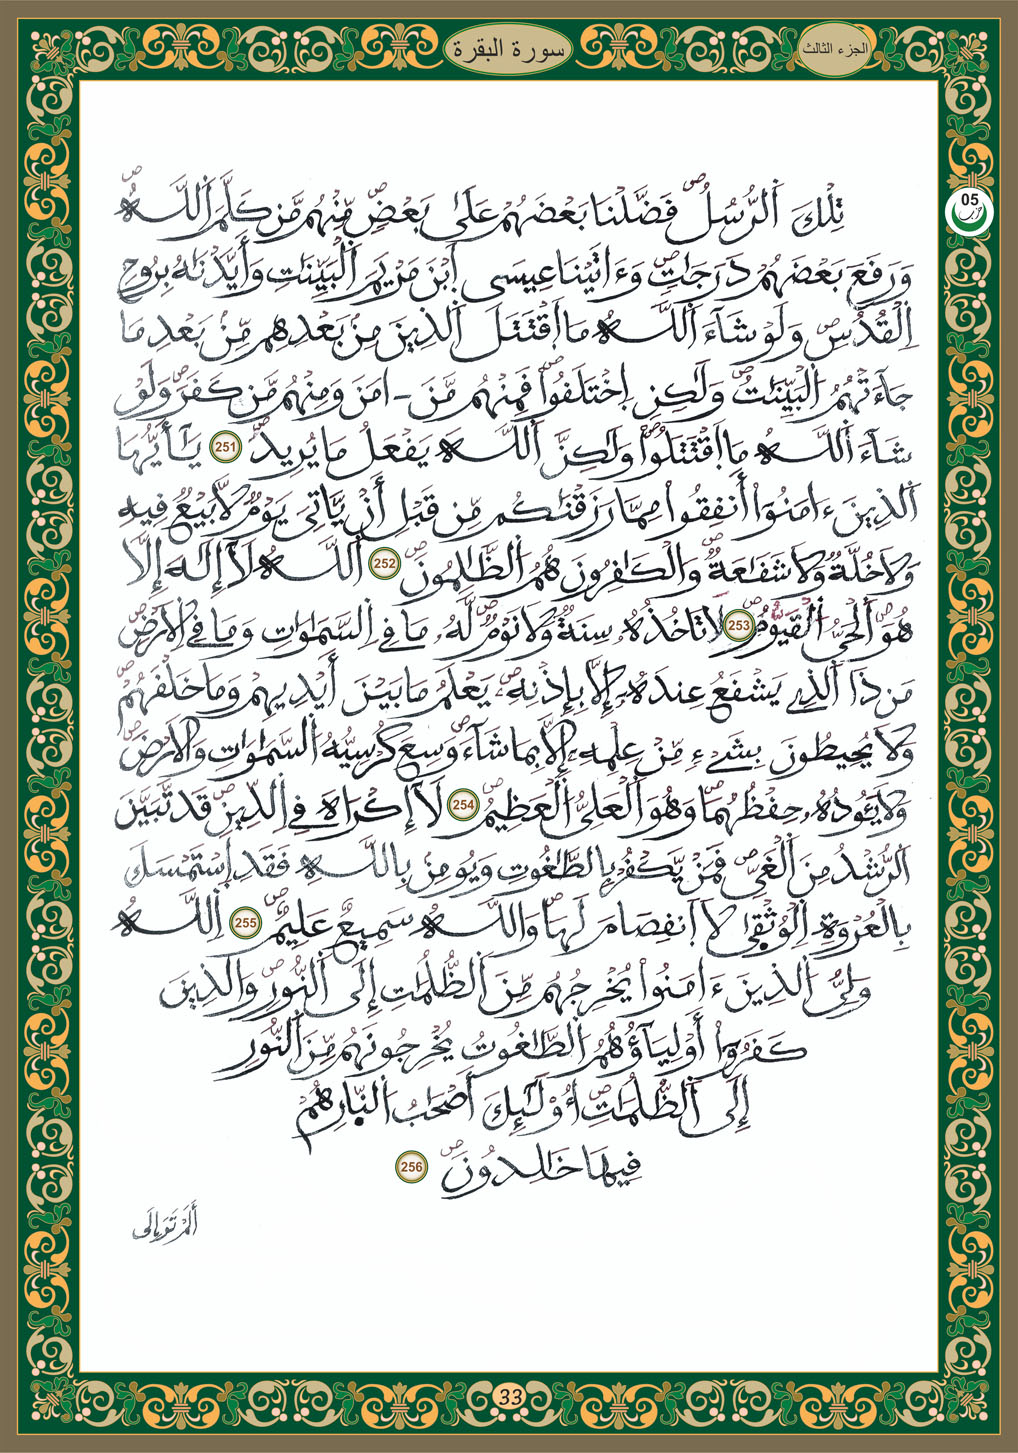 سورة البقرة
الجزء الثالث
05
حزب
تِلْكَ اَ۬لرُّسُلُ فَضَّلْنَا بَعْضَهُمْ عَلَىٰ بَعْضٖ مِّنْهُم مَّن كَلَّمَ اَ۬للَّهُ
وَرَفَعَ بَعْضَهُمْ دَرَجَٰتٖ وَءَاتَيْنَا عِيسَى اَ۪بْنَ مَرْيَمَ اَ۬لْبَيِّنَٰتِ وَأَيَّدْنَٰهُ بِرُوحِ
اِ۬لْقُدُسِ وَلَوْ شَآءَ اَ۬للَّهُ مَا اَ۪قْتَتَلَ اَ۬لذِينَ مِنۢ بَعْدِهِم مِّنۢ بَعْدِ مَا
جَآءَتْهُمُ اُ۬لْبَيِّنَٰتُ وَلَٰكِنِ اِ۪خْتَلَفُواْ فَمِنْهُم مَّنَ ـ امَنَ وَمِنْهُم مَّن كَفَرَ وَلَوْ
شَآءَ اَ۬للَّهُ مَا اَ۪قْتَتَلُواْ وَلَٰكِنَّ اَ۬للَّهَ يَفْعَلُ مَا يُرِيدُ 251 يَٰٓأَيُّهَا
اَ۬لذِينَ ءَامَنُوٓاْ أَنفِقُواْ مِمَّا رَزَقْنَٰكُم مِّن قَبْلِ أَنْ يَّاتِيَ يَوْمٞ لَّا بَيْعٞ فِيهِ
وَلَا خُلَّةٞ وَلَا شَفَٰعَةٞ وَالْكَٰفِرُونَ هُمُ اُ۬لظَّٰلِمُونَ 252 اَ۬للَّهُ لَآ إِلَٰهَ إِلَّا
هُوَ اَ۬لْحَيُّ اُ۬لْقَيُّومُ 253 لَا تَاخُذُهُۥ سِنَةٞ وَلَا نَوْمٞ لَّهُۥ مَا فِے اِ۬لسَّمَٰوَٰتِ وَمَا فِے اِ۬لْأَرْضِ
مَن ذَا اَ۬لذِے يَشْفَعُ عِندَهُۥٓ إِلَّا بِإِذْنِهِۦ يَعْلَمُ مَا بَيْنَ أَيْدِيهِمْ وَمَا خَلْفَهُمْ
وَلَا يُحِيطُونَ بِشَےْءٖ مِّنْ عِلْمِهِۦٓ إِلَّا بِمَا شَآءَ وَسِعَ كُرْسِيُّهُ اُ۬لسَّمَٰوَٰتِ وَالْأَرْضَ
وَلَا يَـُٔودُهُۥ حِفْظُهُمَا وَهُوَ اَ۬لْعَلِيُّ اُ۬لْعَظِيمُ 254 لَآ إِكْرَاهَ فِے اِ۬لدِّينِ قَد تَّبَيَّنَ
اَ۬لرُّشْدُ مِنَ اَ۬لْغَيِّ فَمَنْ يَّكْفُرْ بِالطَّٰغُوتِ وَيُومِنۢ بِاللَّهِ فَقَدِ اِ۪سْتَمْسَكَ
بِالْعُرْوَةِ اِ۬لْوُثْقَىٰ لَا اَ۪نفِصَامَ لَهَا وَاللَّهُ سَمِيعٌ عَلِيمٌ 255 اِ۬للَّهُ
وَلِيُّ اُ۬لذِينَ ءَامَنُواْ يُخْرِجُهُم مِّنَ اَ۬لظُّلُمَٰتِ إِلَى اَ۬لنُّورِ وَالذِينَ
كَفَرُوٓاْ أَوْلِيَآؤُهُمُ اُ۬لطَّٰغُوتُ يُخْرِجُونَهُم مِّنَ اَ۬لنُّورِ
إِلَى اَ۬لظُّلُمَٰتِ أُوْلَٰٓئِكَ أَصْحَٰبُ اُ۬لنّ۪ارِ هُمْ
فِيهَا خَٰلِدُونَ 256
أَلَمْ تَرَ إِلَى
33